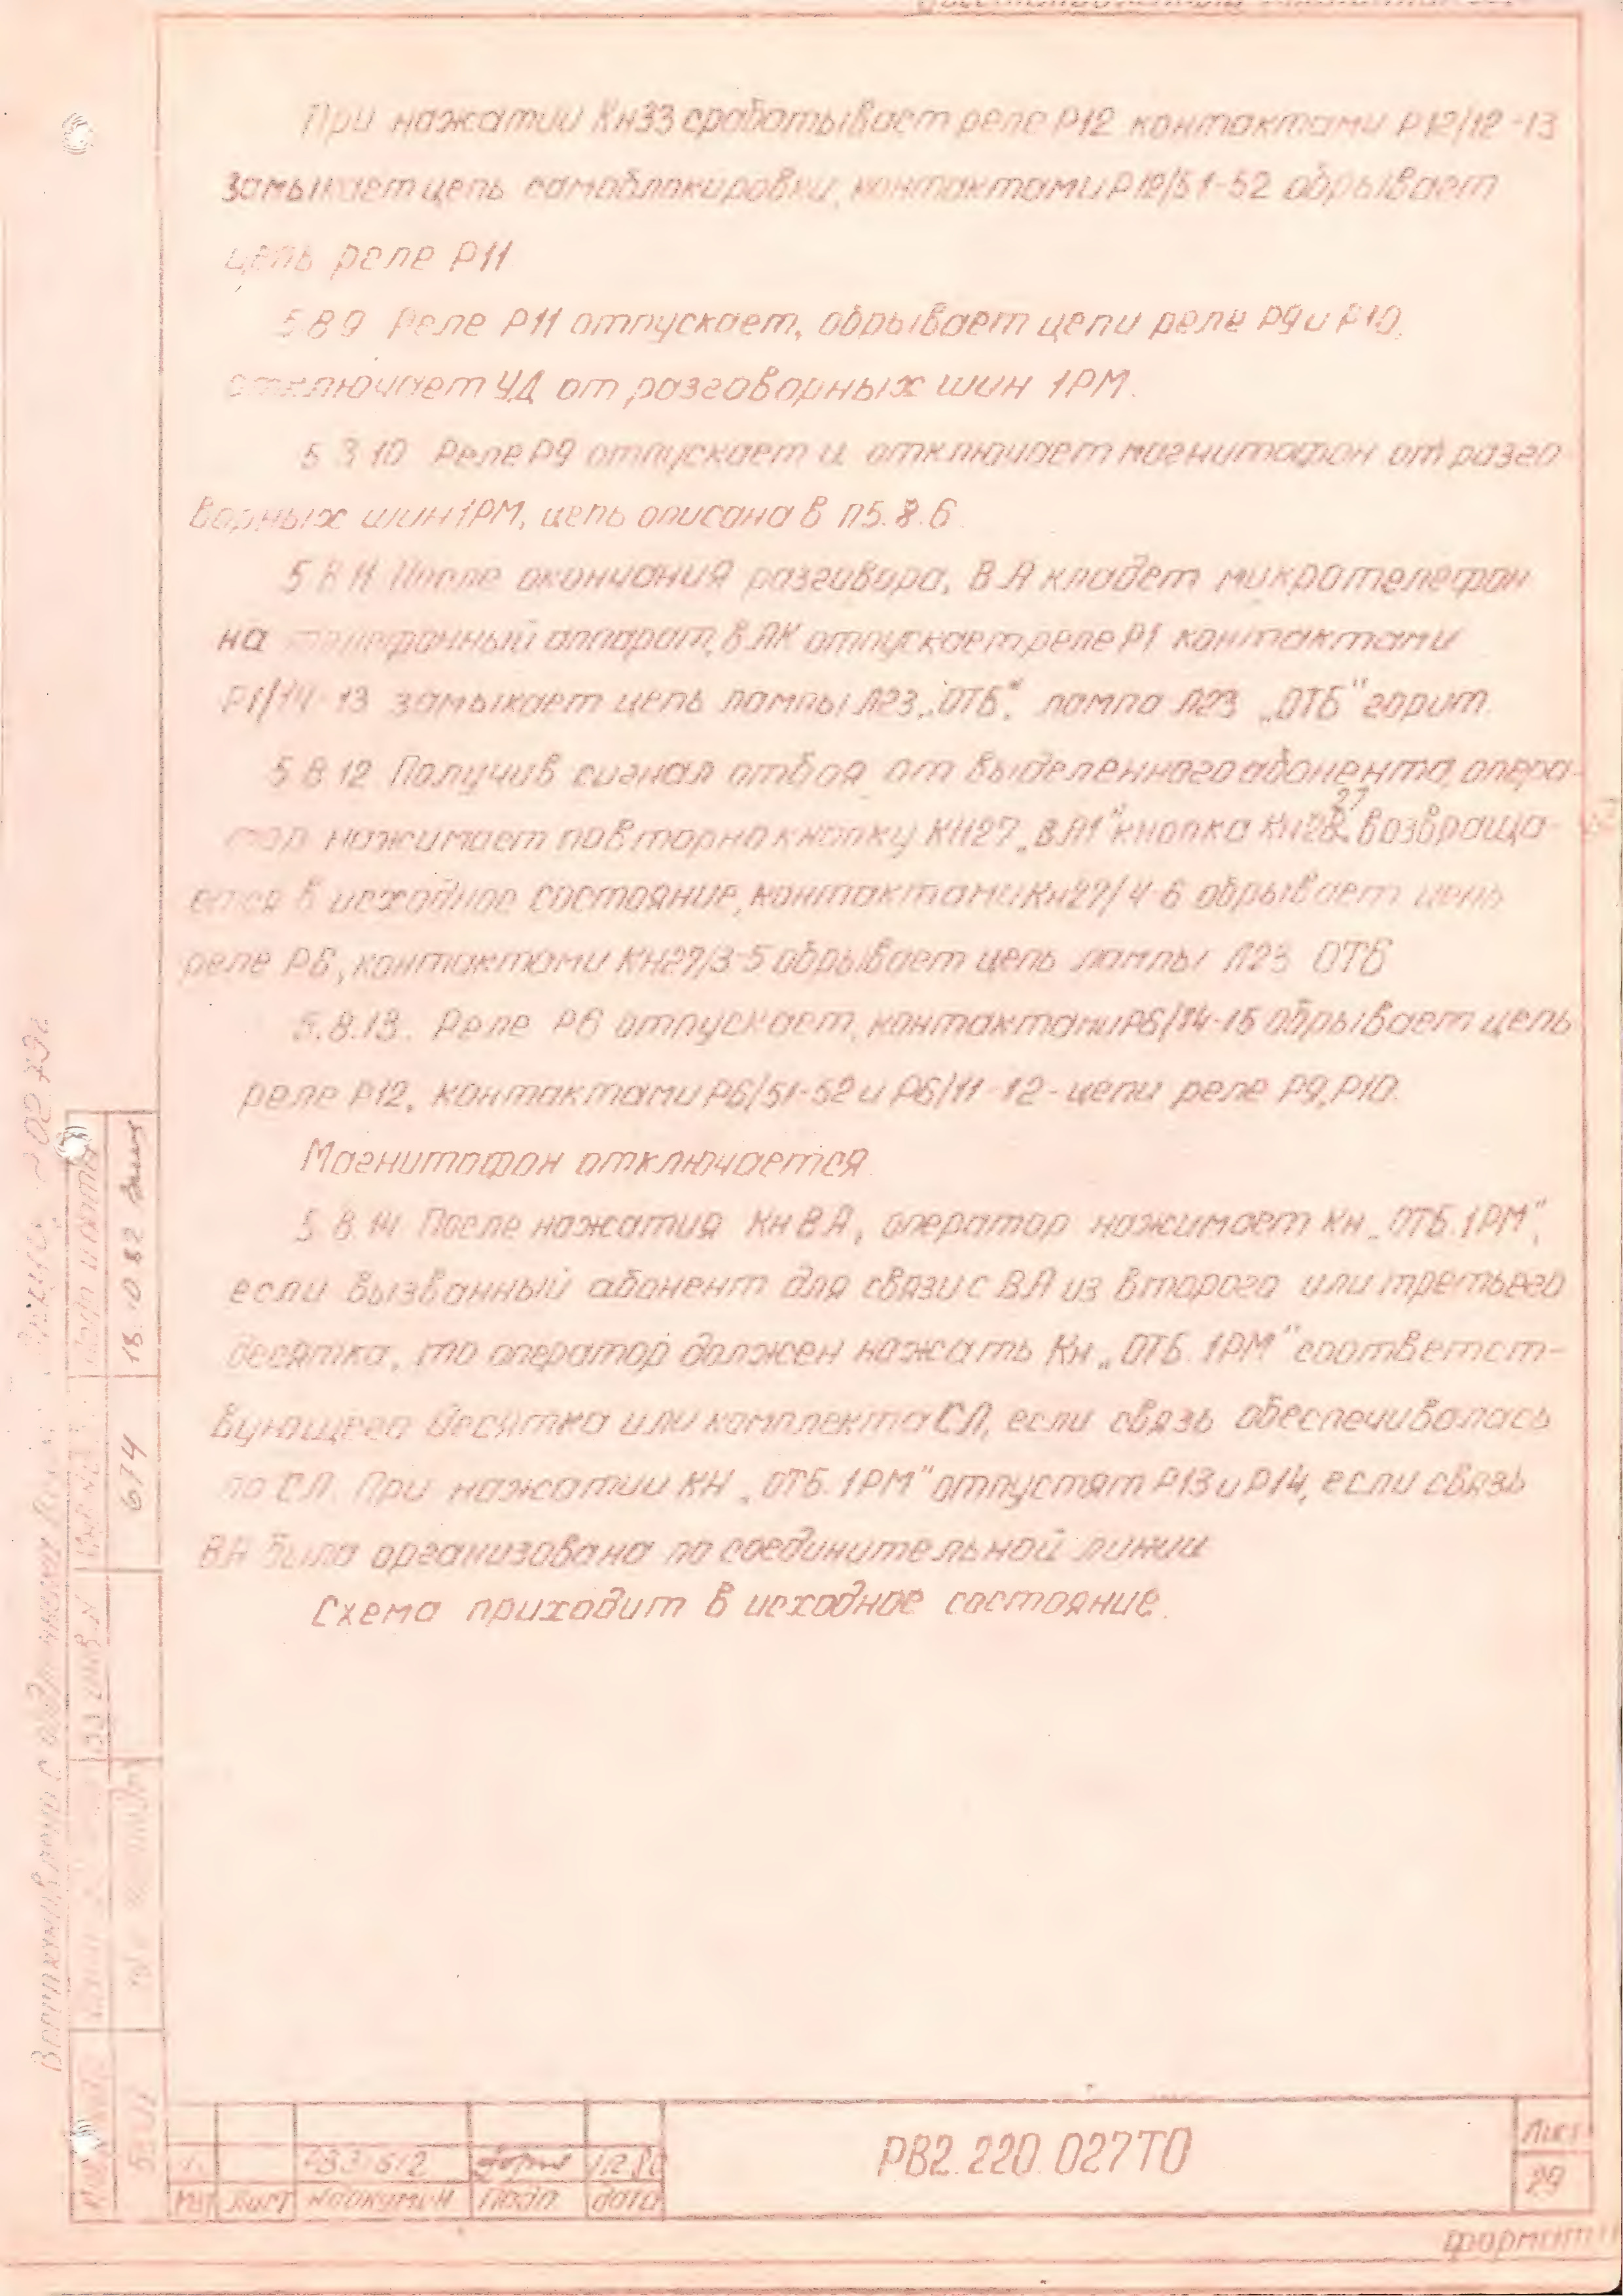 При нажатии Кн33 срабатывает реле Р12 контактами Р12/12-13
замыкает цепь самоблокировки, контактами Р12/51-52 обрывает
цепь реле Р11
5.8.9 Реле Р11 отпускает, обрывает цепи реле Р9 и Р10,
отключает УД от разговорных шин 1РМ.
5.8.10 Реле Р9 отпускает и отключает магнитофон от разго
ворных шин 1РМ, цепь описана в п5.8.6
5.8.11 После окончания разговора, ВА кладет микротелефон
на телефонный аппарат, в АК отпускает реле Р1 контактами
Р1/14-13 замыкает цепь лампы Л23 „ОТБ", лампа Л23 „ОТБ" горит.
5.8.12 Получив сигнал отбоя от выделенного абонента, опера-
тор нажимает повторно кнопку КН27 „ВА1" кнопка Кн27 возвраща-
ется в исходное состояние, контактами Кн27/4-6 обрывает цепь
реле Р6, контактами КН27/3-5 обрывает цепь лампы Л23 ОТБ
5.8.13. Реле Р6 отпускает, контактами Р6/14-15 обрывает цепь
реле Р12, контактами Р6/51-52 и Р6/11-12 - цепи реле Р9, Р10.
Магнитофон отключается.
5.8.14 После нажатия Кн ВА, оператор нажимает Кн „ОТБ.1РМ",
если вызванный абонент для связи с ВА из второго или третьего
десятка, то оператор должен нажать Кн „ОТБ.1РМ" соответст-
вующего десятка или комплекта СЛ, если связь обеспечивалась
по СЛ. При нажатии КН „ОТБ.1РМ" отпустят Р13 и Р14, если связь
ВА была организована по соединительной линии
Схема приходит в исходное состояние.
Подп и дата
18.10.82
674
РВ2.220.027ТО
Лист
29
Лист № докумен Подп дата
формат